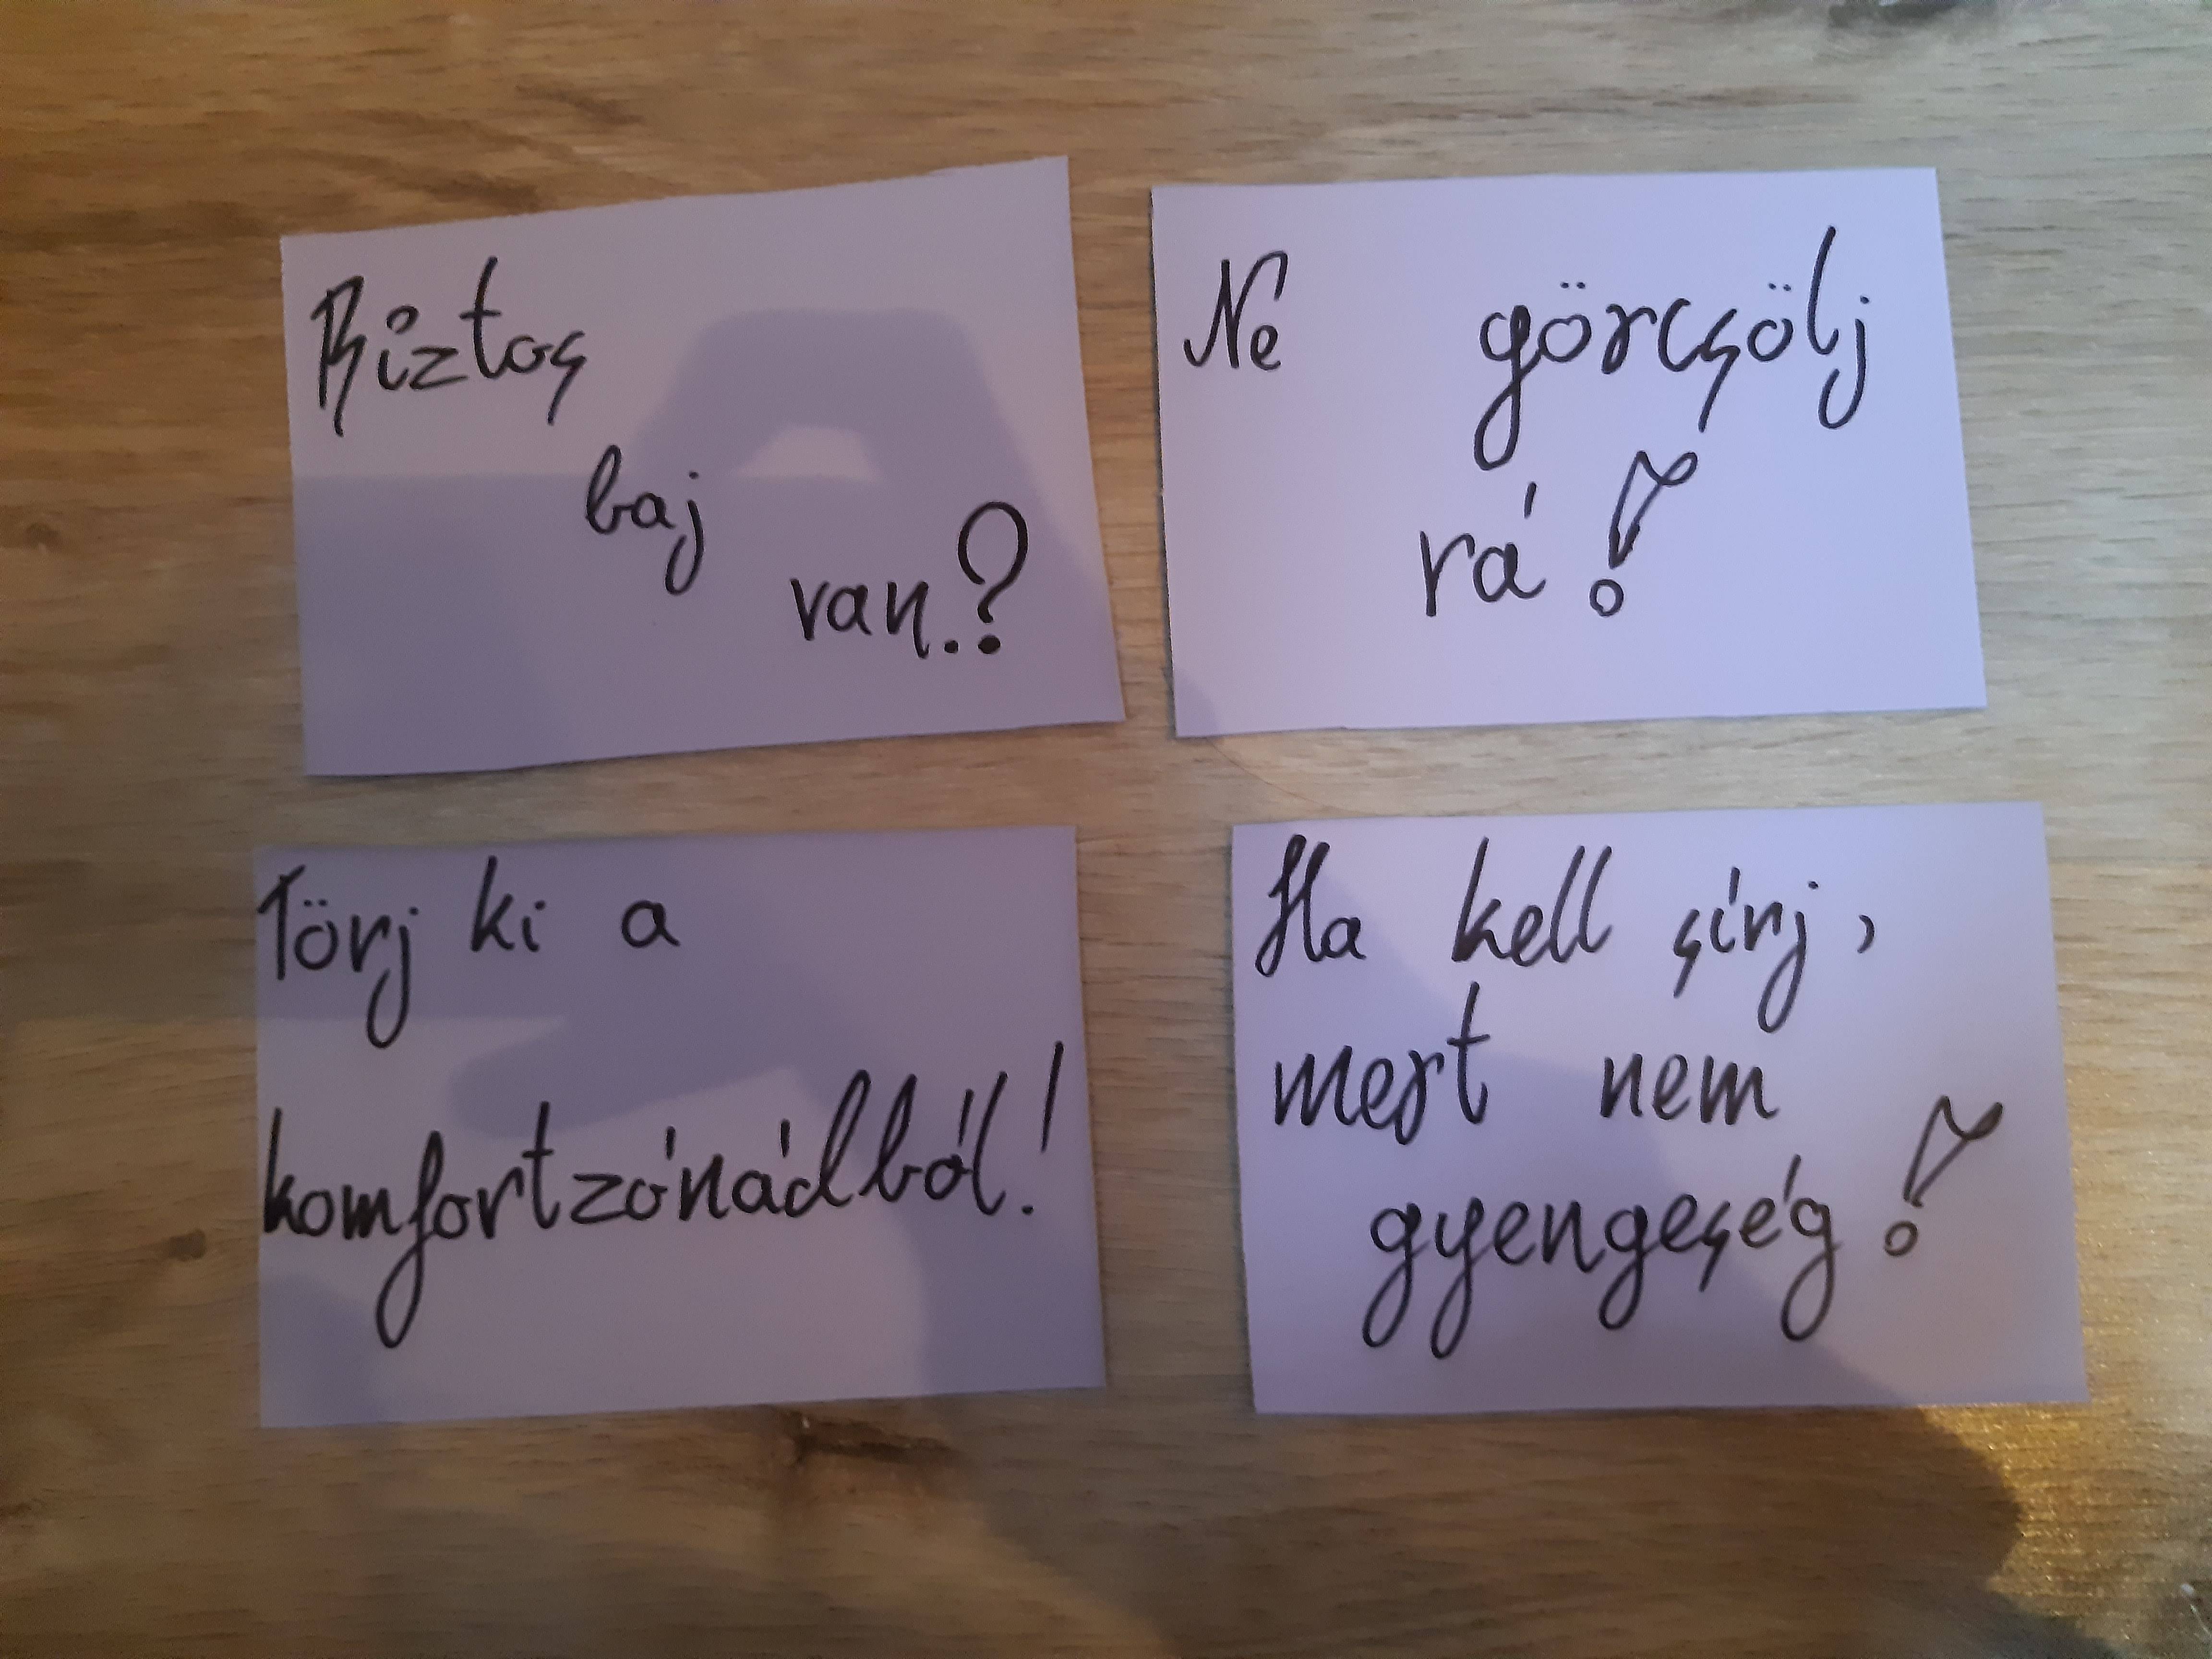 Biztos
baj
van.?
Ne görcsölj
rá!
Törj ki a
komfortzónádból!
Ha kell sírj,
mert nem
gyengeség!